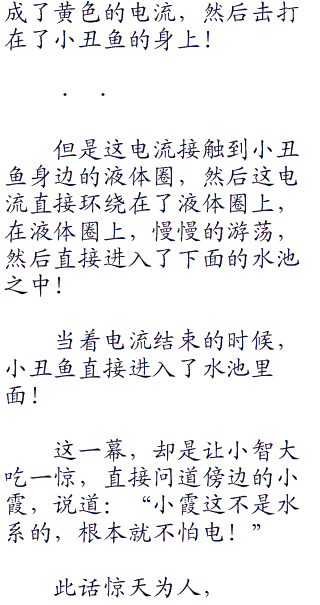 成了黄色的电流，然后击打
在了小丑鱼的身上！
．．
但是这电流接触到小丑
鱼身边的液体圈，然后这电
流直接环绕在了液体圈上，
在液体圈上，慢慢的游荡，
然后直接进入了下面的水池
之中！
当着电流结束的时候，
小丑鱼直接进入了水池里
面！
这一幕，却是让小智大
吃一惊，直接问道傍边的小
霞，说道：“小霞这不是水
系的，根本就不怕电！”
此话惊天为人，